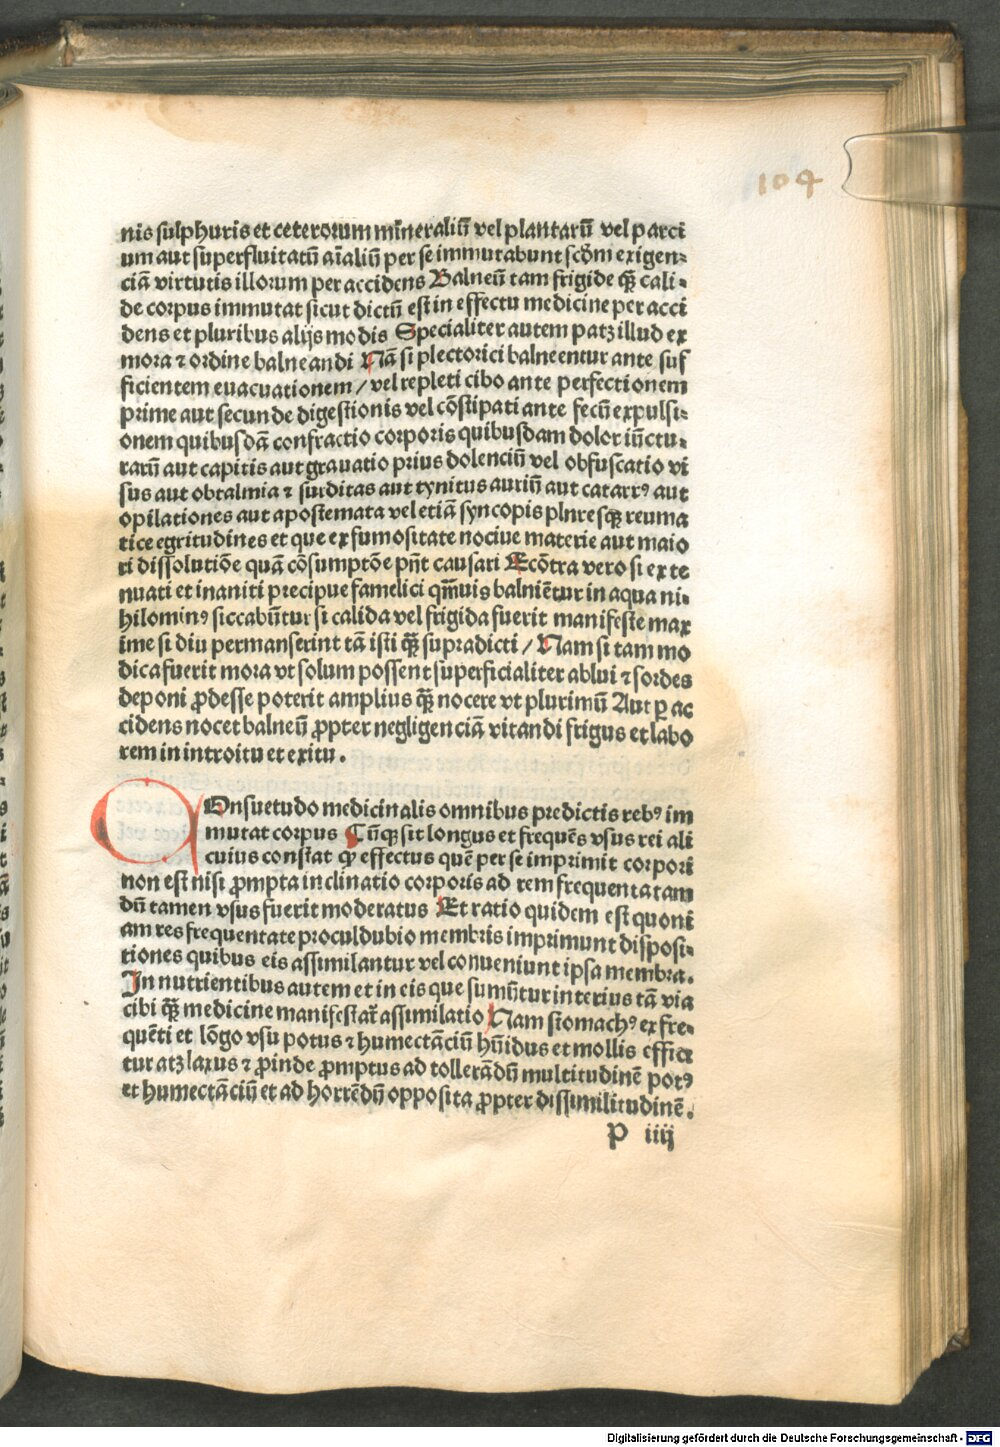 104
nis sulphuris et ceterorum mīneraliū vel plantarū vel parci
um aut superfluitatū aīaliū per se immutabunt scḋm exigen-
ciā virtutis illorum per accidens Balneū tam frigide qȝ cali-
de corpus immutat sicut dictū est in effectu medicine per acci
dens et pluribus alijs modis Specialiter autem patȝ illud ex
mora ⁊ ordine balneandi Nā si plectorici balneentur ante suf
ficientem euacuationem / vel repleti cibo ante perfectionem
prime aut secunde digestionis vel cōstipati ante fecū expulsi-
onem quibusdā confractio corporis quibusdam dolor iūctu-
rarū aut capitis aut grauatio prius dolenciū vel obfuscatio vi
sus aut obtalmia ⁊ surditas aut tynitus auriū aut catarrꝰ aut
opilationes aut apostemata vel etiā syncopis plnresqȝ reuma
tice egritudines et que ex fumositate nociue materie aut maio
ri dissolutiōe quā cōsumptōe pn̄t causari Ecōtra vero si exte
nuati et inaniti precipue famelici qm̄uis balniētur in aqua ni-
hilominꝰ siccabūtur si calida vel frigida fuerit manifeste max
ime si diu permanserint tā isti qȝ supradicti / Nam si tam mo
dica fuerit mora vt solum possent superficialiter ablui ⁊ sordes
deponi ꝓdesse poterit amplius qȝ nocere vt plurimū Aut ꝑ ac
cidens nocet balneū ꝓpter negligenciā vitandi frigus et labo
rem in introitu et exitu .
COnsuetudo medicinalis omnibus predictis rebꝰ im
mutat corpus Cūqȝ sit longus et frequēs vsus rei ali
cuius constat ꝙ effectus quē per se imprimit corpori
non est nisi ꝓmpta inclinatio corporis ad rem frequentatam
dū tamen vsus fuerit moderatus Et ratio quidem est quoni
am res frequentate proculdubio membris imprimunt disposi-
tiones quibus eis assimilantur vel conueniunt ipsa membra.
In nutrientibus autem et in eis que sumūtur interius tā via
cibi qȝ medicine manifestat̄ assimilatio Nam stomachꝰ ex fre-
quēti et lōgo vsu potus ⁊ humectāciū hūidus et mollis effici
tur atȝ laxus ⁊ ꝓinde ꝓmptus ad tollerādū multitudinē potꝰ
et humectāciū et ad horrēdū opposita ꝓpter dissimilitudinē.
P iiij
Digitalisierung gefördert durch die Deutsche Forschungsgemeinschaft - DFG